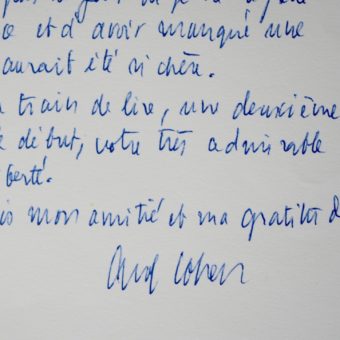 ce et d'avoir manqué une
aurait été si chère.
train de lire, une deuxième
début, votre très admirable
berté.
mon amitié et ma gratitud
Cohen